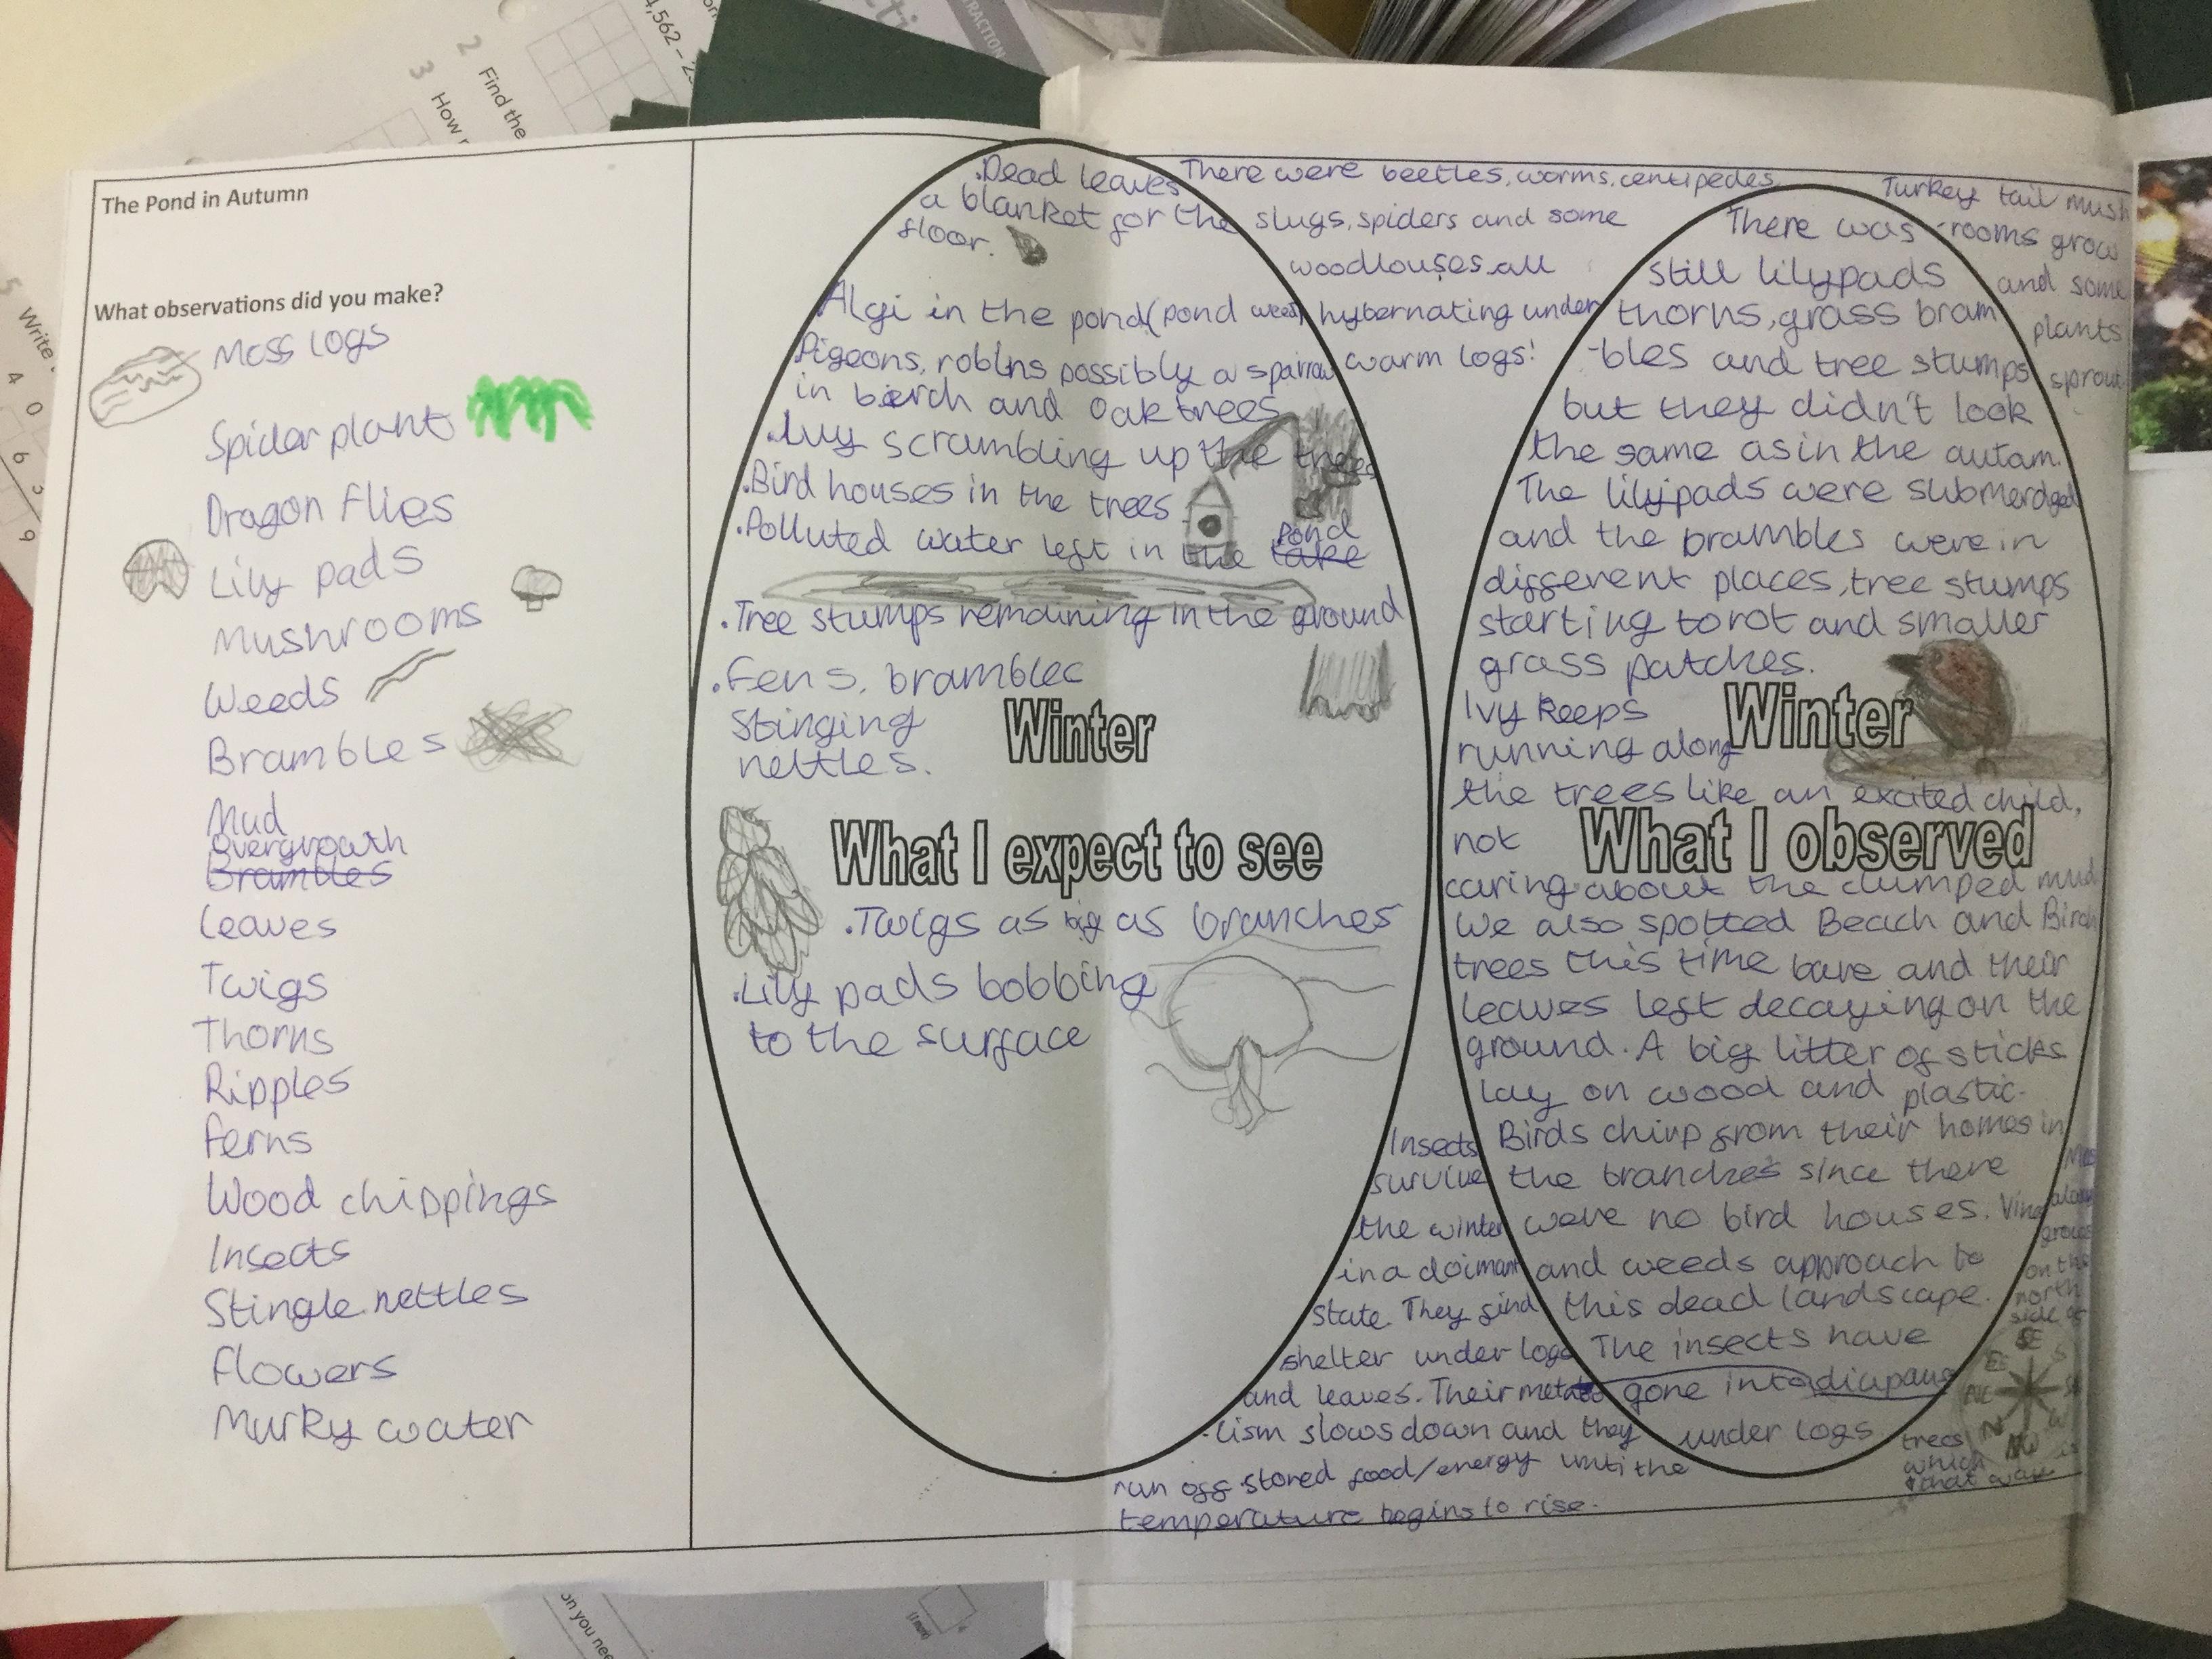 The Pond in Autumn
What observations did you make?
Moss logs
Spider plant
Dragon flies
Lily pads
Mushrooms
Weeds
Brambles
Mud
overgrowth
Brambles
Leaves
Twigs
Thorns
Ripples
ferns
Wood chippings
Insects
Stingle nettles
flowers
Murky water
.Dead leaves
a blanket for the
floor.
Algi in the pond(pond weed)
Pigeons, robins possibly a sparrow
in berch and oak trees
.Ivy scrambling up the trees
.Bird houses in the trees
pond
.Polluted water left in the lake
.Tree stumps remaining in the ground
.Fens, brambles
Stinging
nettles.
Winter
What I expect to see
.Twigs as big as branches
.Lily pads bobbing
to the surface
There were beetles, worms, centipedes,
slugs, spiders and some
woodlouses all
hybernating under
warm logs!
Turkey tail mush
-rooms grow
and some
plants
sprout
There was
still lilypads
thorns, grass bram
-bles and tree stumps
but they didn't look
the same as in the autam.
The lilypads were submerdged
and the brambles were in
different places, tree stumps
starting to rot and smaller
grass patches.
Ivy keeps
running along
the trees like an excited child,
not
caring about the clumped mud
Winter
What I observed
We also spotted Beach and Birch
trees this time bare and their
leaves left decaying on the
ground. A big litter of sticks
lay on wood and plastic.
Birds chirp from their homes in
the branches since there
were no bird houses. Vine
and weeds approach to
this dead landscape.
The insects have
gone into diapaus
under logs
Insects
survive
the winter
in a dormant
state. They find
shelter under logs
and leaves. Their metabo
-lism slows down and they
run off stored food/energy until the
temperature begins to rise.
along
grows
on the
north
side of
SE
S
NE
N
W
NW
trees
which
what way is
4,562 - 2
2 Find the
3 How
5 Write
4 0
6 5
9
on you nee
RACTION